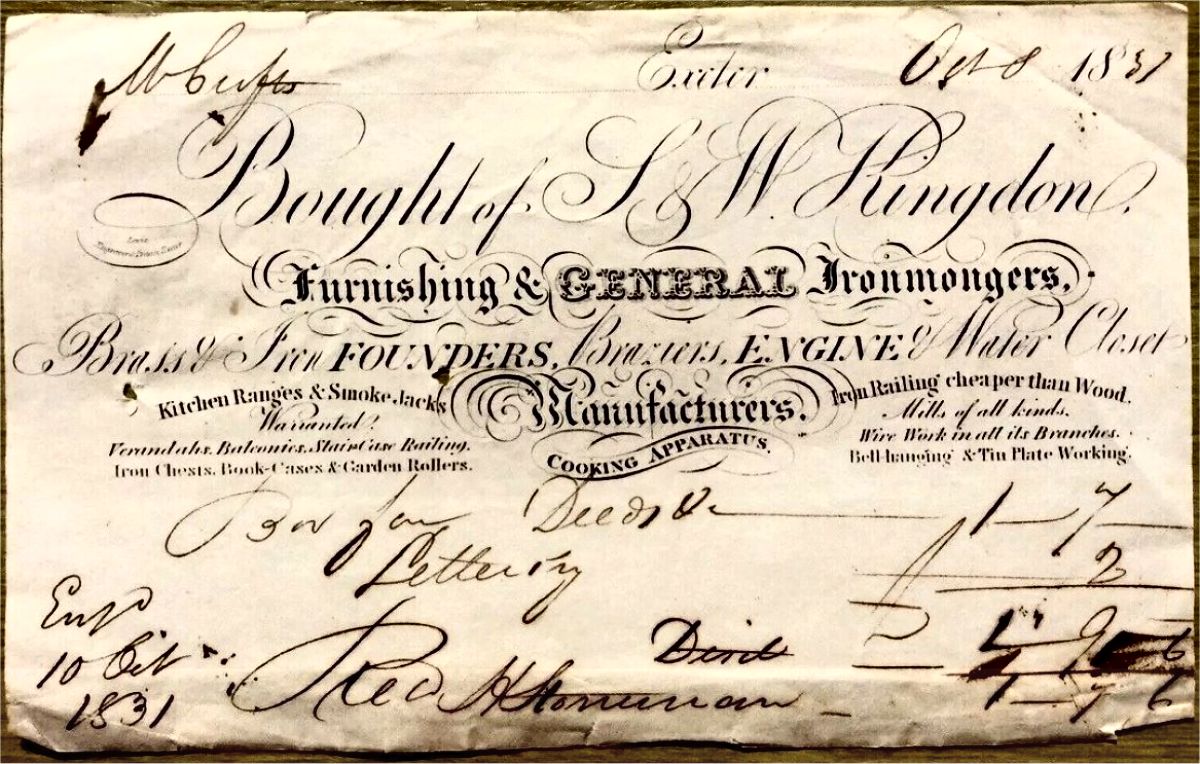 Mr Crofts
Exeter Oct 8 1831
Bought of S & W. Kingdon.
Furnishing & GENERAL Ironmongers,
Brass & Iron FOUNDERS, Braziers, ENGINE & Water Closet
Manufacturers.
COOKING APPARATUS.
Kitchen Ranges & Smoke Jacks
Warranted.
Verandahs, Balconies, Stair Case Railing,
Iron Chests, Book-Cases & Garden Rollers.
Iron Railing cheaper than Wood.
Mills of all kinds.
Wire Work in all its Branches.
Bell-hanging & Tin Plate Working.
Box for Deeds &c 1 7
Lettering 2
1 9 6
1 7 6
Entd
10 Oct
1831
Recd H Stoneman